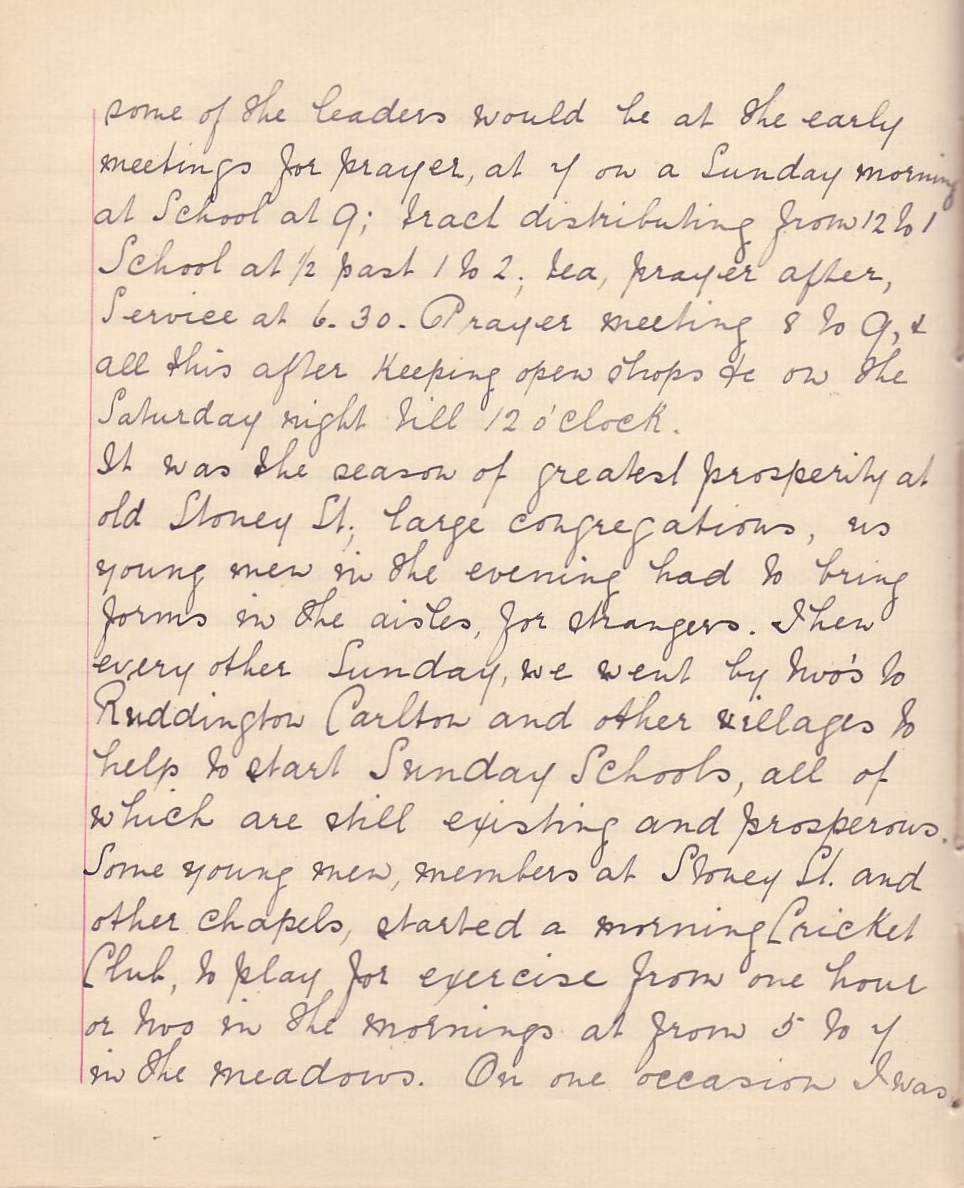 some of the leaders would be at the early
meetings for prayer, at 7 on a Sunday morning
at School at 9; tract distributing from 12 to 1
School at 1/2 past 1 to 2; tea, prayer after,
Service at 6.30. Prayer meeting 8 to 9, &
all this after Keeping open shops &c on the
Saturday night till 12 o'clock.
It was the season of greatest prosperity at
old Stoney St; large congregations, us
young men in the evening had to bring
forms in the aisles, for strangers. Then
every other Sunday, we went by two's to
Ruddington Carlton and other villages to
help to start Sunday Schools, all of
which are still existing and prosperous.
Some young men, members at Stoney St. and
other chapels, started a morning Cricket
Club, to play for exercise from one hour
or two in the mornings at from 5 to 7
in the meadows. On one occasion I was